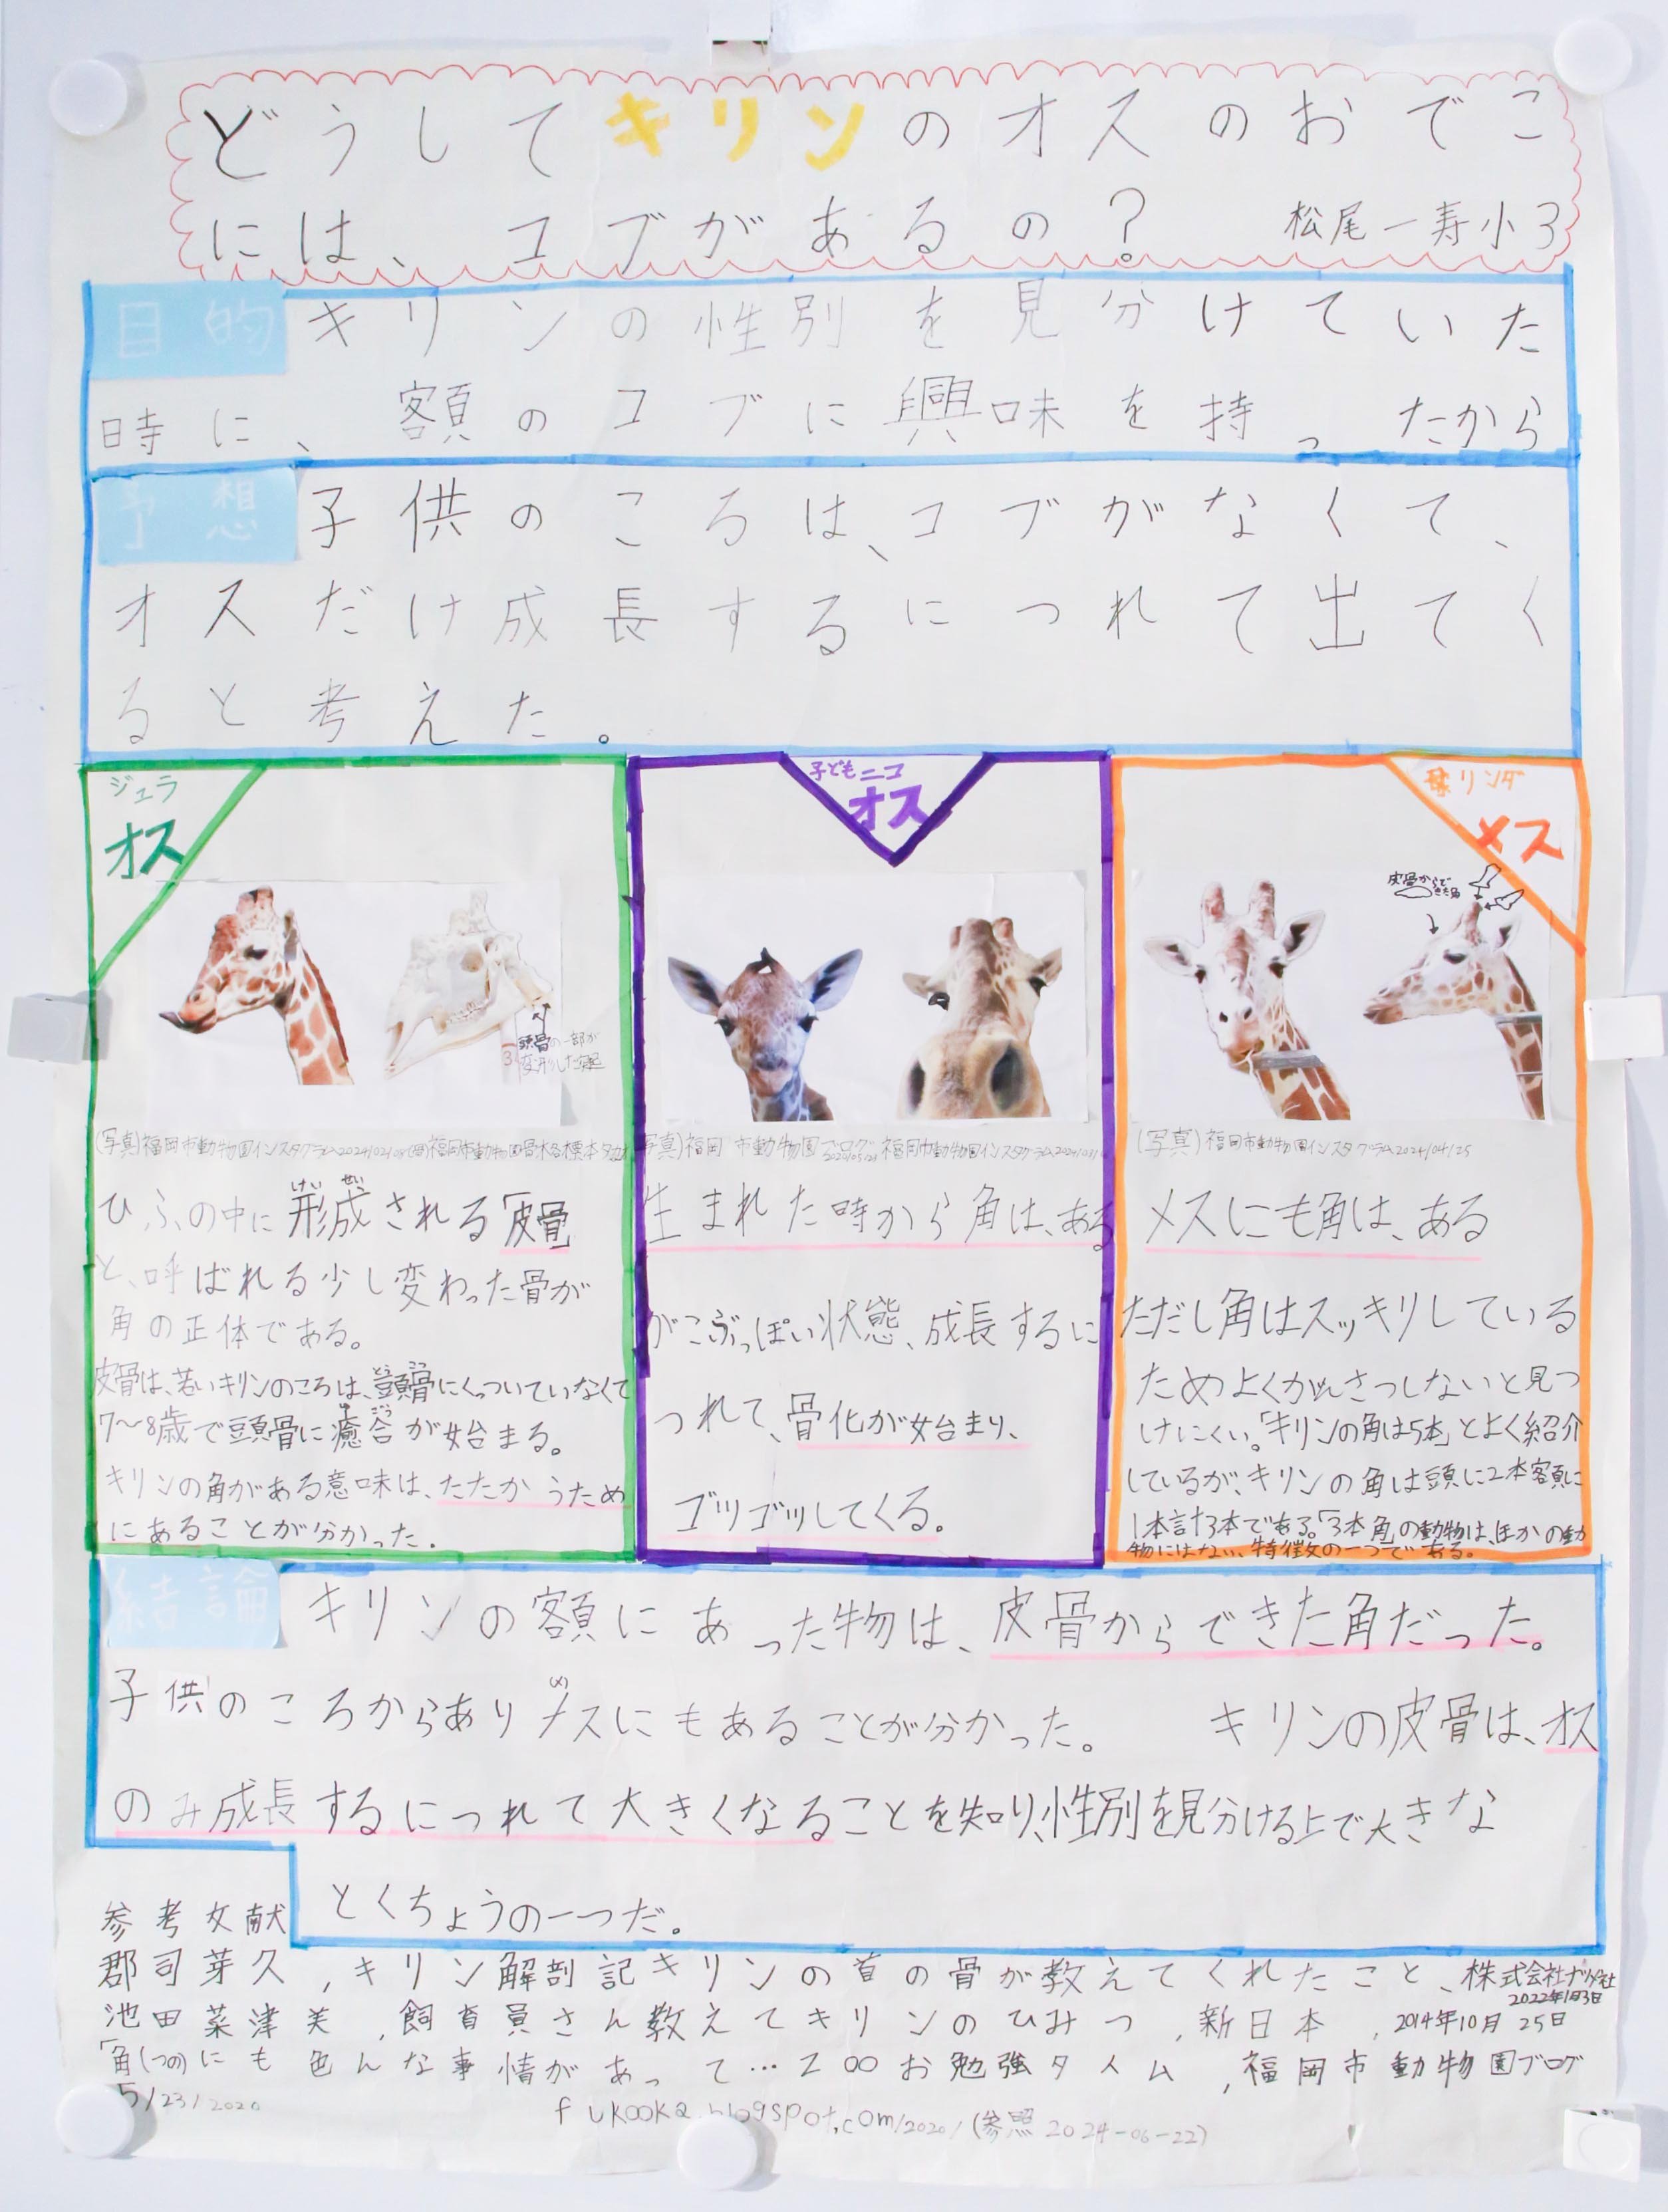 どうしてキリンのオスのおでこ
には、コブがあるの?
松尾一寿小3
目的 キリンの性別を見分けていた
時に、額のコブに興味を持ったから
予想 子供のころは、コブがなくて、
オスだけ成長するにつれて出てく
ると考えた。
ジュラ
オス
頭骨の一部が
変形した
(写真)福岡市動物園インスタグラム2024/02/
福岡市動物園骨格標本
ひふの中に形成される「皮骨」
けい せい
と、呼ばれる少し変わった骨が
角の正体である。
皮骨は、若いキリンのころは、頭骨にくっついていなくて
とう こつ
7〜8歳で頭骨に癒合が始まる。
ゆ ごう
キリンの角がある意味は、たたかうため
にあることが分かった。
子どもニコ
オス
写真)福岡市動物園ブログ 福岡市動物園インスタグラム2024/03/
生まれた時から角は、ある
がこぶっぽい状態、成長するに
つれて、骨化が始まり、
ゴツゴツしてくる。
リンダ
メス
皮骨からで
きた角
(写真)福岡市動物園インスタグラム2024/04/25
メスにも角は、ある
ただし角はスッキリしている
ためよくかんさつしないと見つ
けにくい。「キリンの角は5本」とよく紹介
しているが、キリンの角は頭に2本額に
1本計3本である。「3本角」の動物は、ほかの動
物にはない、特徴の一つである。
結論 キリンの額にあった物は、皮骨からできた角だった。
子供のころからありメスにもあることが分かった。 キリンの皮骨は、オス
のみ成長するにつれて大きくなることを知り、性別を見分ける上で大きな
とくちょうの一つだ。
参考文献
郡司芽久,キリン解剖記キリンの首の骨が教えてくれたこと、株式会社ナツメ社
2022年1月3日
池田菜津美,飼育員さん教えてキリンのひみつ,新日本,2014年10月25日
「角(つの)にも色んな事情があって…ZOOお勉強タイム,福岡市動物園ブログ
5/23/2020 fukooka.blogspot.com/2020/(参照2024-06-22)